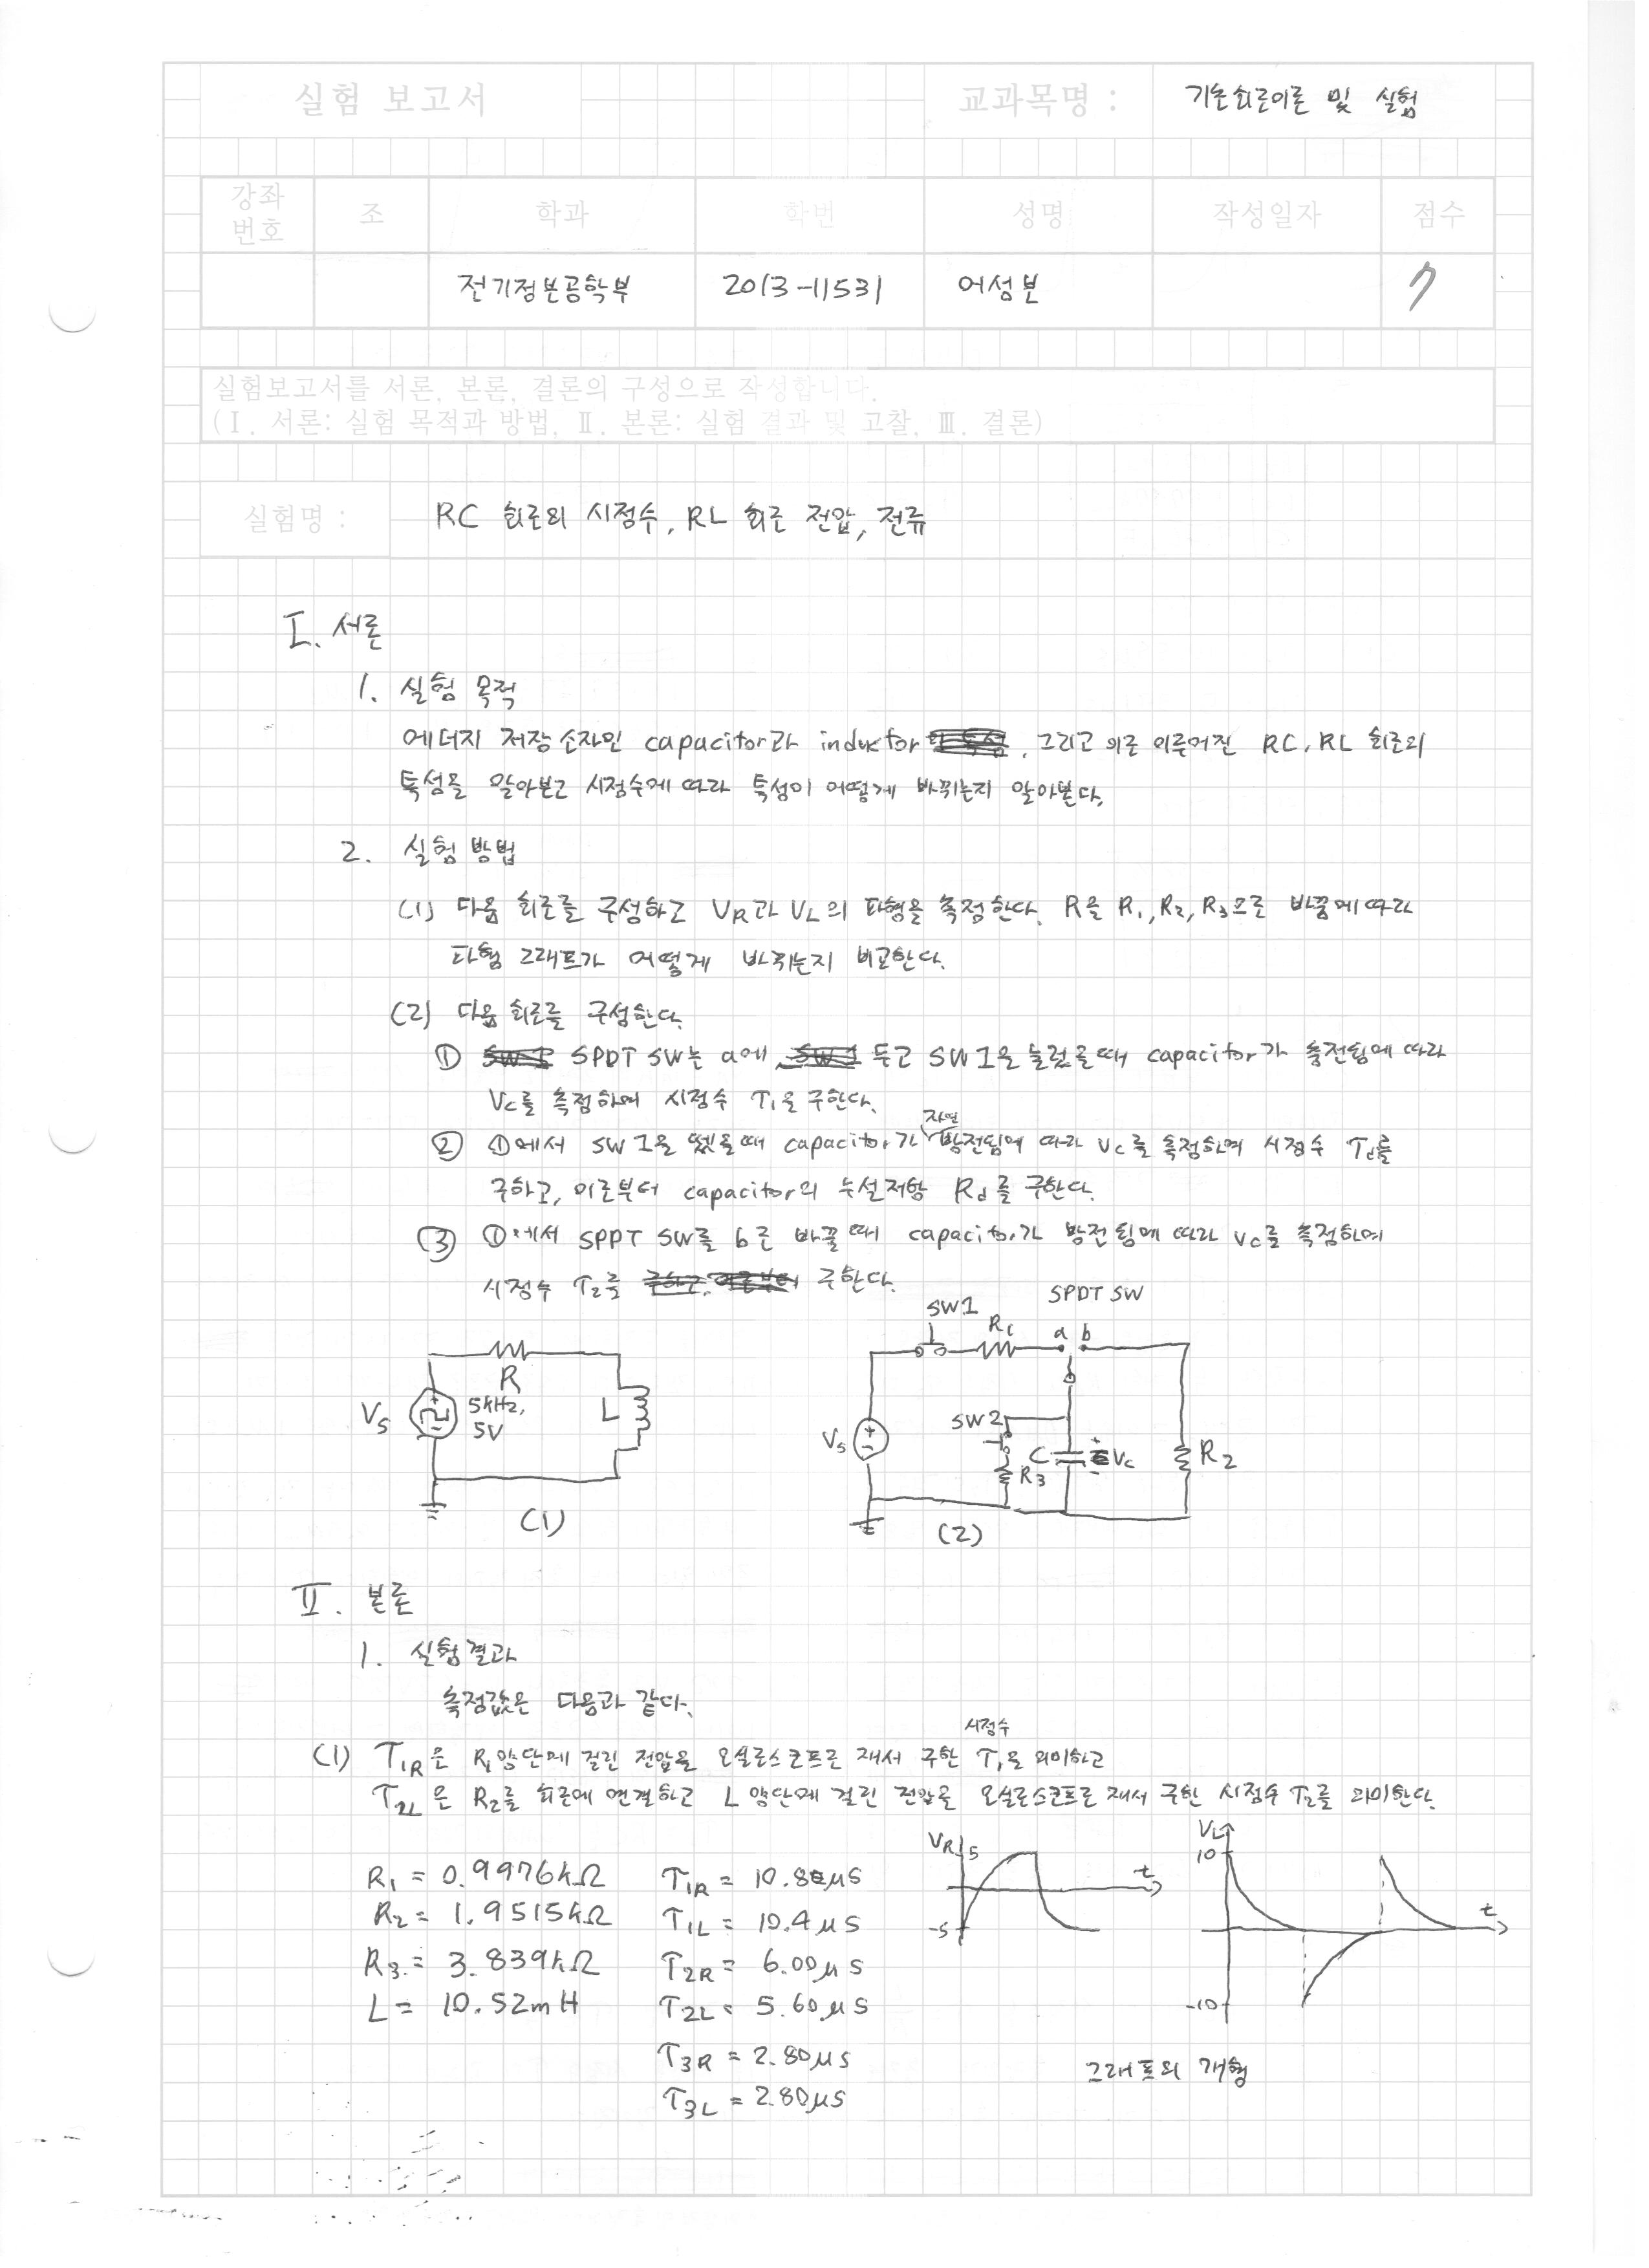 실험 보고서
교과목명 : 기초회로이론 및 실험
강좌번호 조 학과 학번 성명 작성일자 점수
전기정보공학부 2013-11531 어성본 7
실험보고서를 서론, 본론, 결론의 구성으로 작성합니다.
(Ⅰ. 서론: 실험 목적과 방법, Ⅱ. 본론: 실험 결과 및 고찰, Ⅲ. 결론)
실험명 : RC 회로의 시정수, RL 회로 전압, 전류
Ⅰ. 서론
1. 실험 목적
에너지 저장 소자인 capacitor과 inductor, 그리고 이로 이루어진 RC, RL 회로의
특성을 알아보고 시정수에 따라 특성이 어떻게 바뀌는지 알아본다.
2. 실험 방법
(1) 다음 회로를 구성하고 VR과 VL의 파형을 측정한다. R을 R1, R2, R3으로 바꿈에 따라
파형 그래프가 어떻게 바뀌는지 비교한다.
(2) 다음 회로를 구성한다.
① SPDT SW는 a에 두고 SW1을 눌렀을 때 capacitor가 충전됨에 따라
Vc를 측정하여 시정수 τ1을 구한다.
② ①에서 SW1을 뗐을 때 capacitor가 자연 방전됨에 따라 Vc를 측정하여 시정수 τd를
구하고, 이로부터 capacitor의 누설저항 Rd를 구한다.
③ ①에서 SPDT SW를 b로 바꿀 때 capacitor가 방전됨에 따라 Vc를 측정하여
시정수 τ2를 구한다.
SW1 R1 SPDT SW a b
R
Vs 5kHz, 5V L
Vs SW2 R3 C + - Vc R2
(1) (2)
Ⅱ. 본론
1. 실험 결과
측정값은 다음과 같다.
(1) τ1R은 R1 양단에 걸린 전압을 오실로스코프로 재서 구한 시정수 τ1을 의미하고
τ2L은 R2를 회로에 연결하고 L 양단에 걸린 전압을 오실로스코프로 재서 구한 시정수 τ2를 의미한다.
R1 = 0.9976kΩ τ1R = 10.8μs
R2 = 1.9515kΩ τ1L = 10.4μs
R3 = 3.839kΩ τ2R = 6.00μs
L = 10.52mH τ2L = 5.60μs
τ3R = 2.80μs
τ3L = 2.80μs
VR 5 -5 t
VL 10 -10 t
그래프의 개형